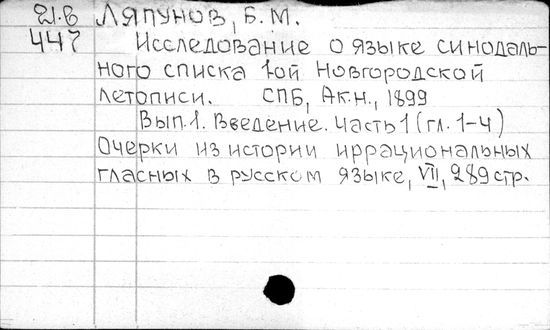 21.в Ляпунов, Б.М.
447 Исследование о языке синодаль-
ного списка 1ой Новгородской
летописи. СПБ, Ак.н., 1899
Вып.1. Введение. Часть 1 (гл. 1-4)
Очерки из истории иррациональных
гласных в русском языке, VII, 289 стр.